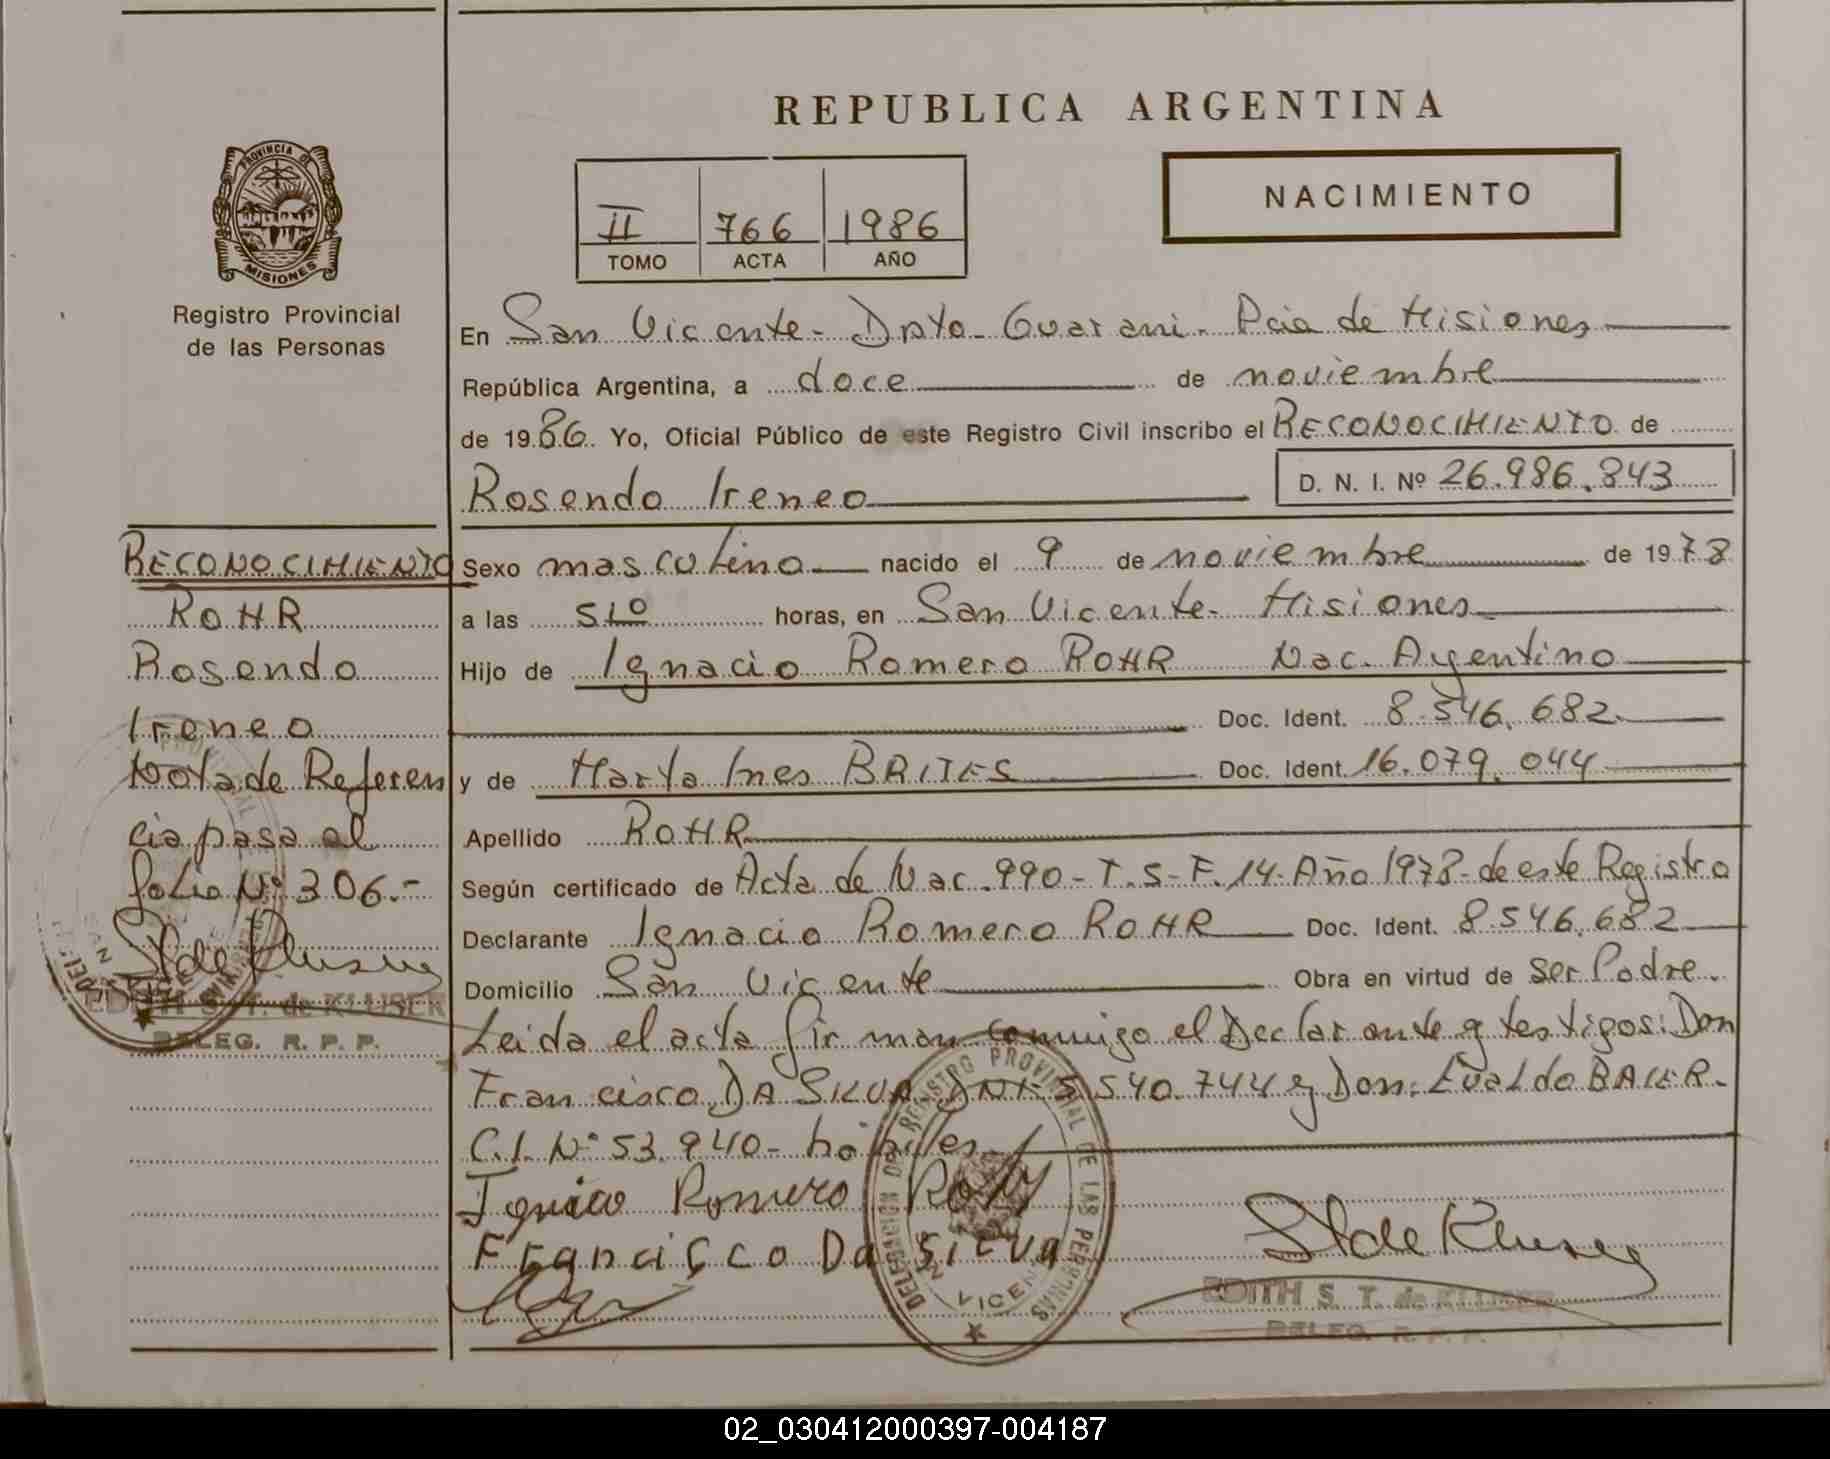 REPUBLICA ARGENTINA
NACIMIENTO
II 766 1986
TOMO ACTA AÑO
PROVINCIA DE
MISIONES
Registro Provincial
de las Personas
En San Vicente - Dpto - Guarani - Pcia de Misiones
República Argentina, a doce de noviembre
de 1986. Yo, Oficial Público de este Registro Civil inscribo el RECONOCIMIENTO de
Rosendo Ireneo
D. N. I. Nº 26.986.843
RECONOCIMIENTO
ROHR
Rosendo
Ireneo
Nota de Referen
cia pasa al
folio Nº 306.-
EDITH S. T. de KLUSER
DELEG. R. P. P.
Sexo masculino nacido el 9 de noviembre de 1978
a las S/º horas, en San Vicente - Misiones
Hijo de Ignacio Romero ROHR Nac. Argentino
Doc. Ident. 8.546.682
y de Marta Ines BRITES Doc. Ident. 16.079.044
Apellido ROHR
Según certificado de Acta de Nac. 990 - T. S - F. 14 - Año 1978 - de este Registro
Declarante Ignacio Romero ROHR Doc. Ident. 8.546.682
Domicilio San Vicente Obra en virtud de ser Padre.
Leida el acta firman conmigo el Declarante y testigos: Don
Francisco DA SILVA DNI - 5.540.744 y Don. Evaldo BAIER.
C.I. Nº 53.940 - hábiles
Ignacio Romero Rohr
Francisco Da Silva
DELEGACION DEL REGISTRO PROVINCIAL DE LAS PERSONAS
SAN VICENTE
EDITH S. T. de KLUSER
DELEG. R. P. P.
02_030412000397-004187